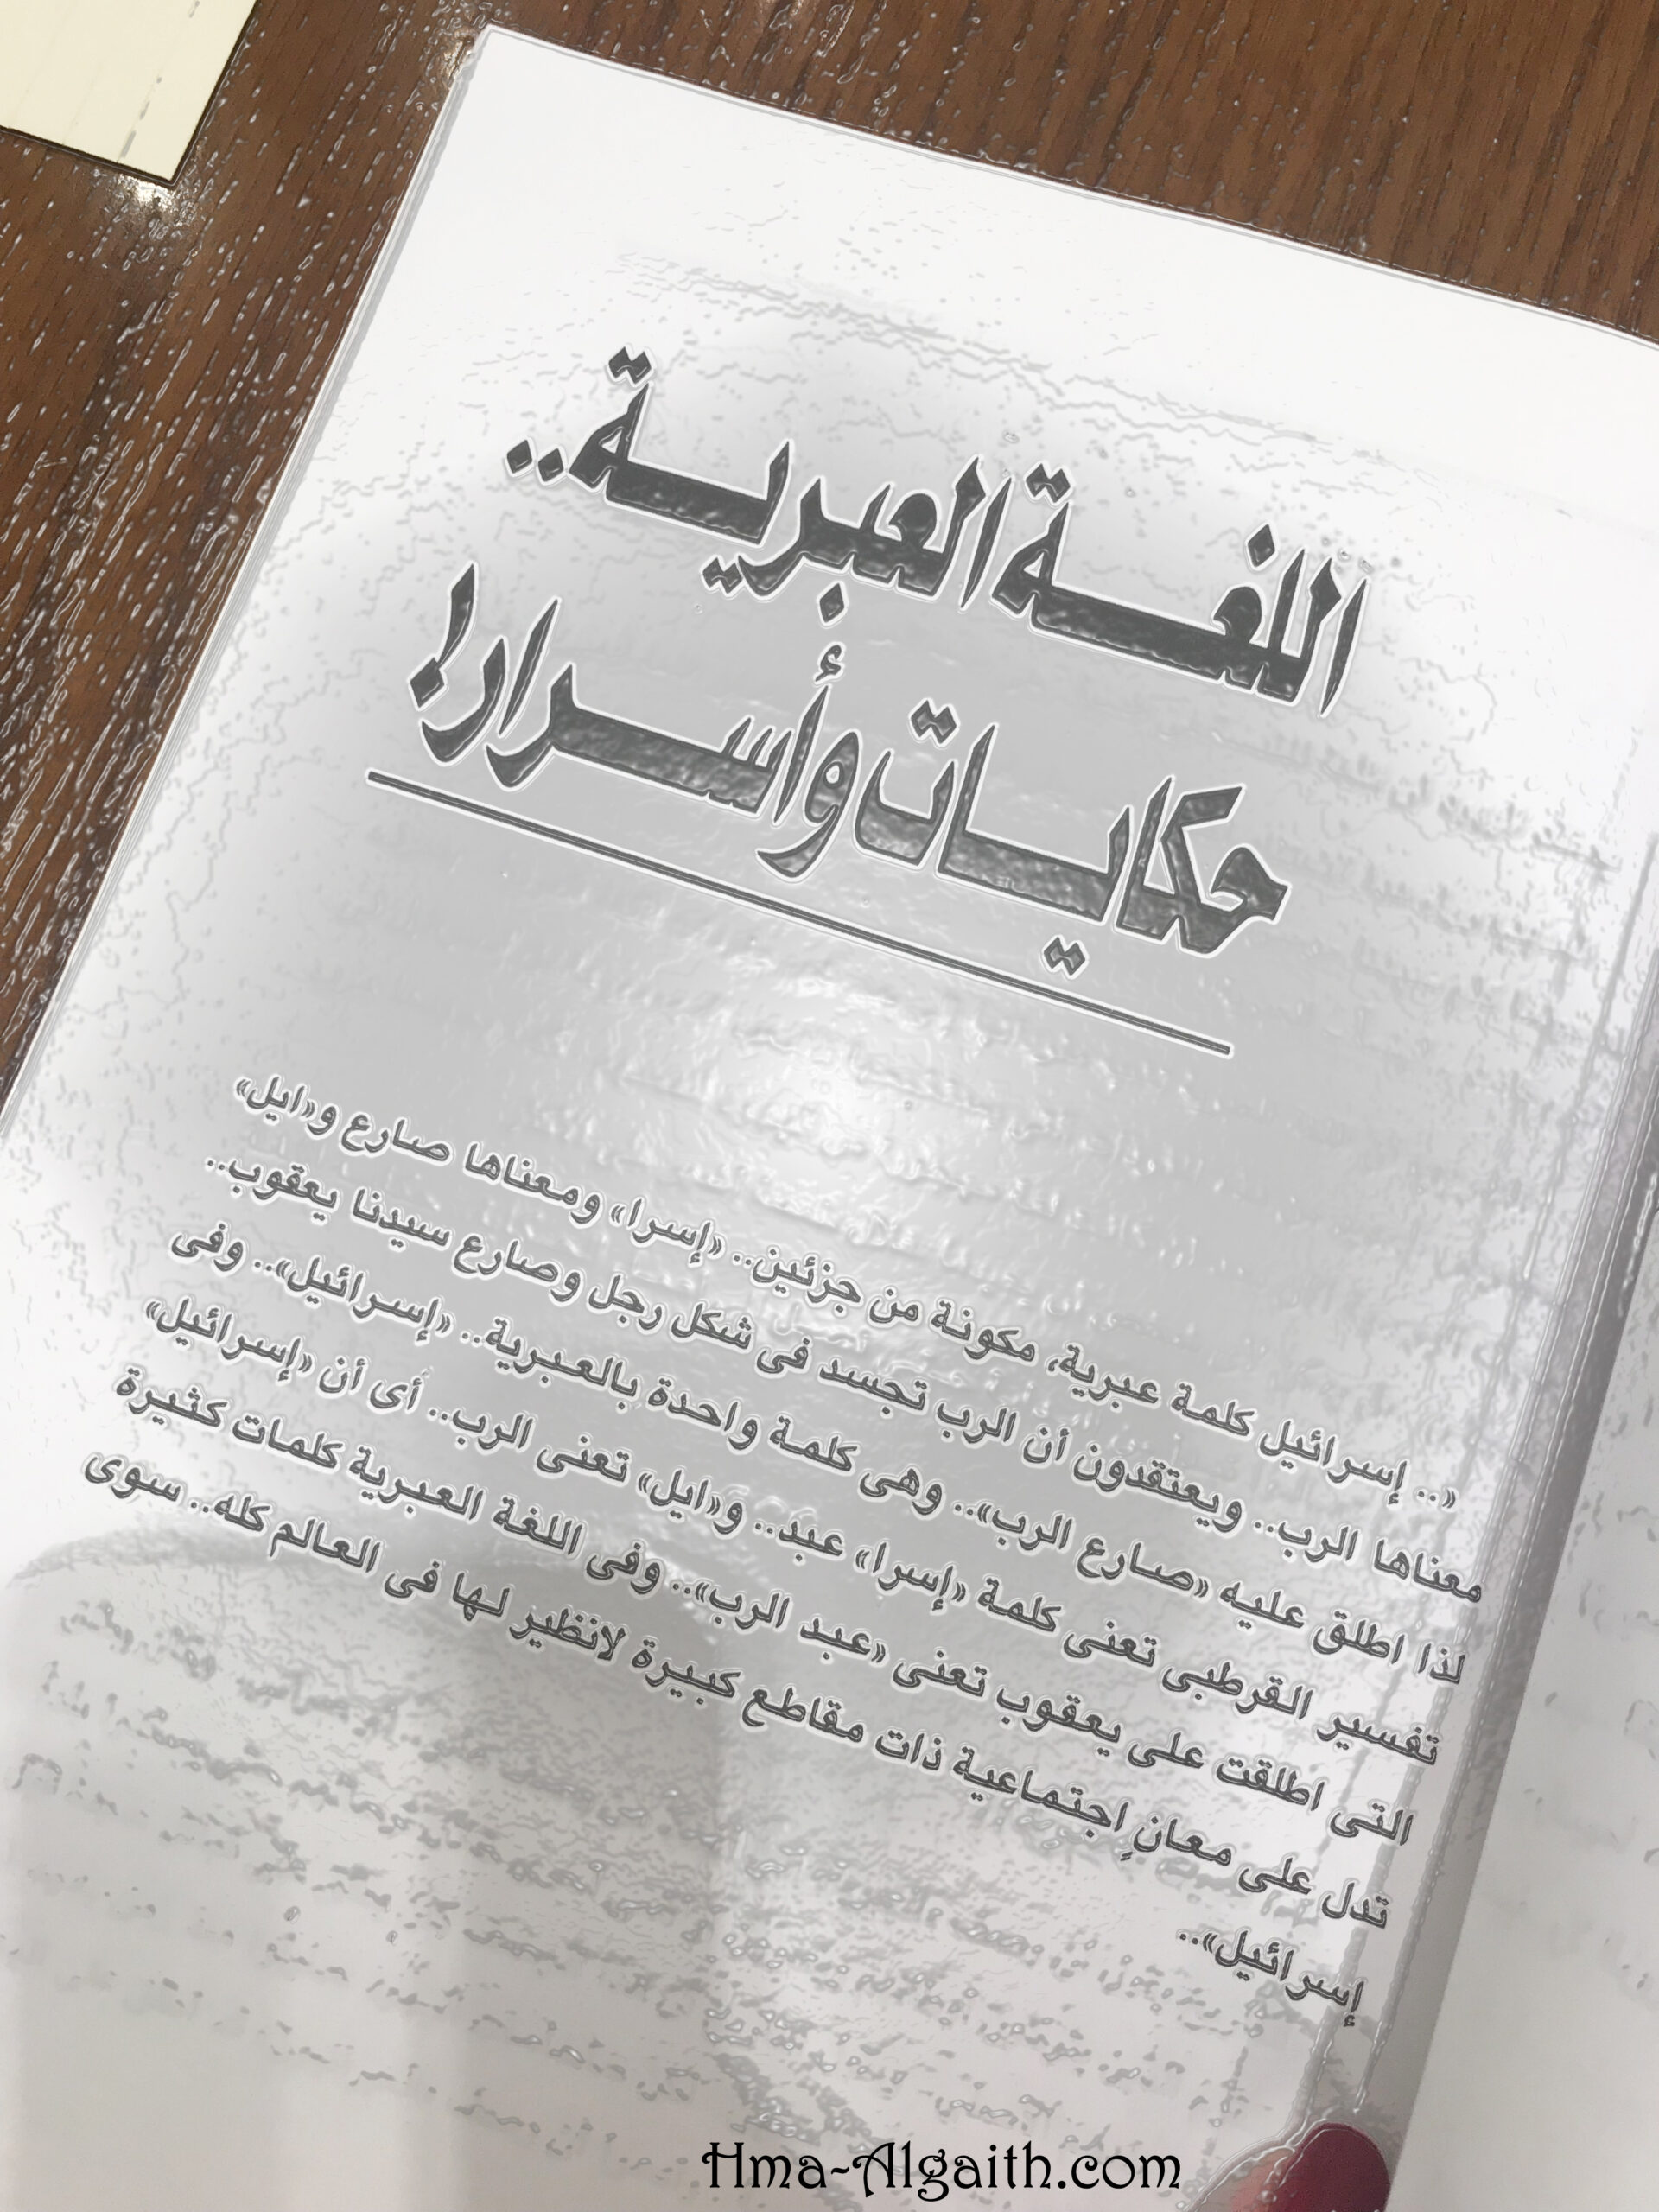 اللغة العبرية..
حكايات وأسرار!
«.. إسرائيل كلمة عبرية، مكونة من جزئين.. «إسرا» ومعناها صارع و«ايل»
معناها الرب.. ويعتقدون أن الرب تجسد فى شكل رجل وصارع سيدنا يعقوب..
لذا اطلق عليه «صارع الرب».. وهى كلمة واحدة بالعبرية.. «إسرائيل».. وفى
تفسير القرطبى تعنى كلمة «إسرا» عبد.. و«ايل» تعنى الرب.. أى أن «إسرائيل»
التى اطلقت على يعقوب تعنى «عبد الرب».. وفى اللغة العبرية كلمات كثيرة
تدل على معانٍ اجتماعية ذات مقاطع كبيرة لانظير لها فى العالم كله.. سوى
إسرائيل»..
Hma-Algaith.com